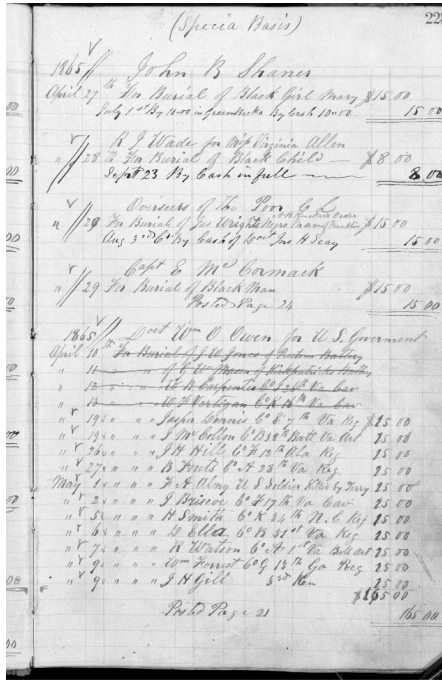 (Specia Basis)
223
1865 John R Shaner
April 27th For Burial of Black Girl Mary $15 00
July 1st By 10.00 in Green Backs By Cash 10.00 15 00
R J Wade for Miss Virginia Allen
" 28th For Burial of Black Child $8 00
Sept 23 By Cash in full 8 00
Overseers of The Poor C. L.
" 29 For Burial of Jas Wright Negro Man $15 00
Aug 3rd By Cash of Jas H Seay 15 00
Capt E McCormack
" 29 For Burial of Black Man $15 00
Posted Page 24 15 00
1865 Doct Wm O. Owen for U. S. Goverment
April 10th For Burial of J W Jones of Battery
" 11 " of C W Moon of Kirkpatricks Batty
" 12 " Carpenter Co I 26th Va Cav
" 13 " W F Co K 15th Va Cav
" 19 " " " Jasper Dennis Co E 7th Va Reg $15 00
" 19 " " " J McCollon Co B 38th Batt Va Art 15 00
" 26 " " " J H Hill Co F 12th Ala Reg 15 00
" 27 " " " B Co A 28th Va Reg 15 00
May 1 " " " F A U S Soldier Killed by Ferry 15 00
" 2 " " " J Briscoe Co F 17th Va Cav 15 00
" 5 " " " H Smith Co K 34th N. C Reg 15 00
" 6 " " " D Ella Co B 51st Va Reg 25 00
" 7 " " " R Watson Co A 1st Va Batt art 25 00
" 9 " " " Wm Forrest Co G 13th Ga Reg 25 00
" 9 " " " J H Gill 3rd 25 00
$165 00
Posted Page 21 165 00